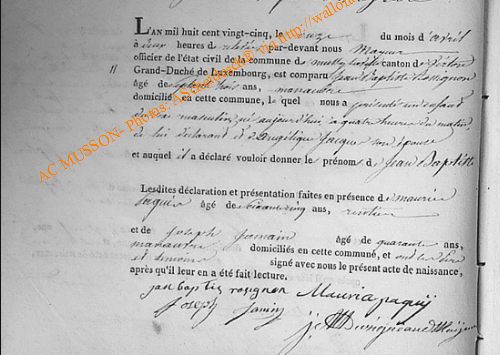 L'AN mil huit cent vingt-cinq, le onze du mois d'avril
à deux heures de relevé par-devant nous Mayeur
officier de l'état civil de la commune de canton de
Grand-Duché de Luxembourg, est comparu Jean Baptiste Rossignon
âgé de trois ans, manœuvre
domicilié en cette commune, le quel nous a présenté un enfant
du sexe masculin, né aujourd'hui à quatre heures du matin
de lui déclarant et d'Angélique Jacque son épouse
et auquel il a déclaré vouloir donner le prénom de Jean Baptiste
Lesdites déclaration et présentation faites en présence de maurice
Jaques âgé de cinq ans, rentier
et de Joseph Jamain âgé de quarante ans,
manœuvre domiciliés en cette commune, et ont le Père
et témoins signé avec nous le présent acte de naissance,
après qu'il leur en a été fait lecture.
jan baptis rosignon Mauris jaquij
Joseph Jamin
AC MUSSON- Photos: via http://wallon